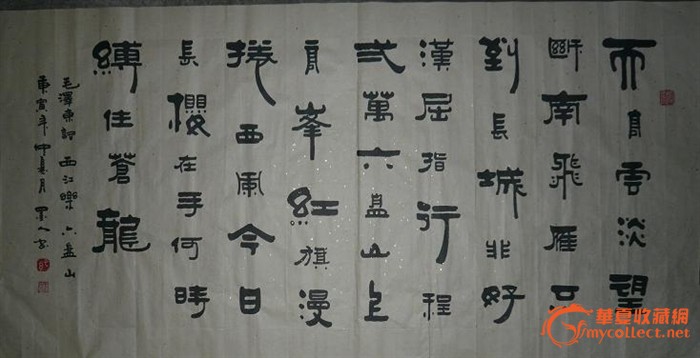 天高雲淡望
斷南飛雁不
到長城非好
漢屈指行程
弍萬六盤山上
高峯紅旗漫
捲西風今日
長纓在手何時
縛住蒼龍
毛澤東詞 西江樂 六盤山
庚寅年中夏月
華夏收藏網
mycollect.net